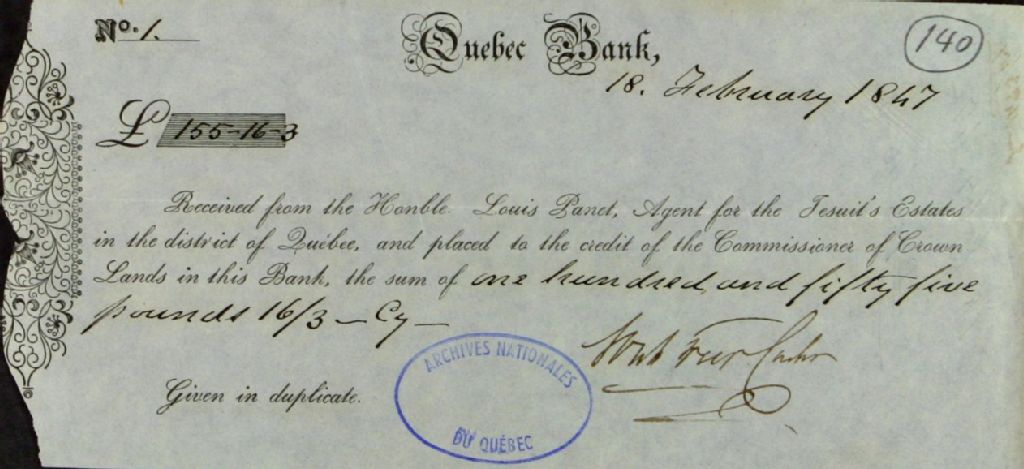 No. 1.
140
Quebec Bank,
18. February 1847
£ 155-16-3
Received from the Honble Louis Panet, Agent for the Jesuit's Estates
in the district of Québec, and placed to the credit of the Commissioner of Crown
Lands in this Bank, the sum of one hundred and fifty five
pounds 16/3 — Cy —
Given in duplicate.
ARCHIVES NATIONALES
DU QUÉBEC